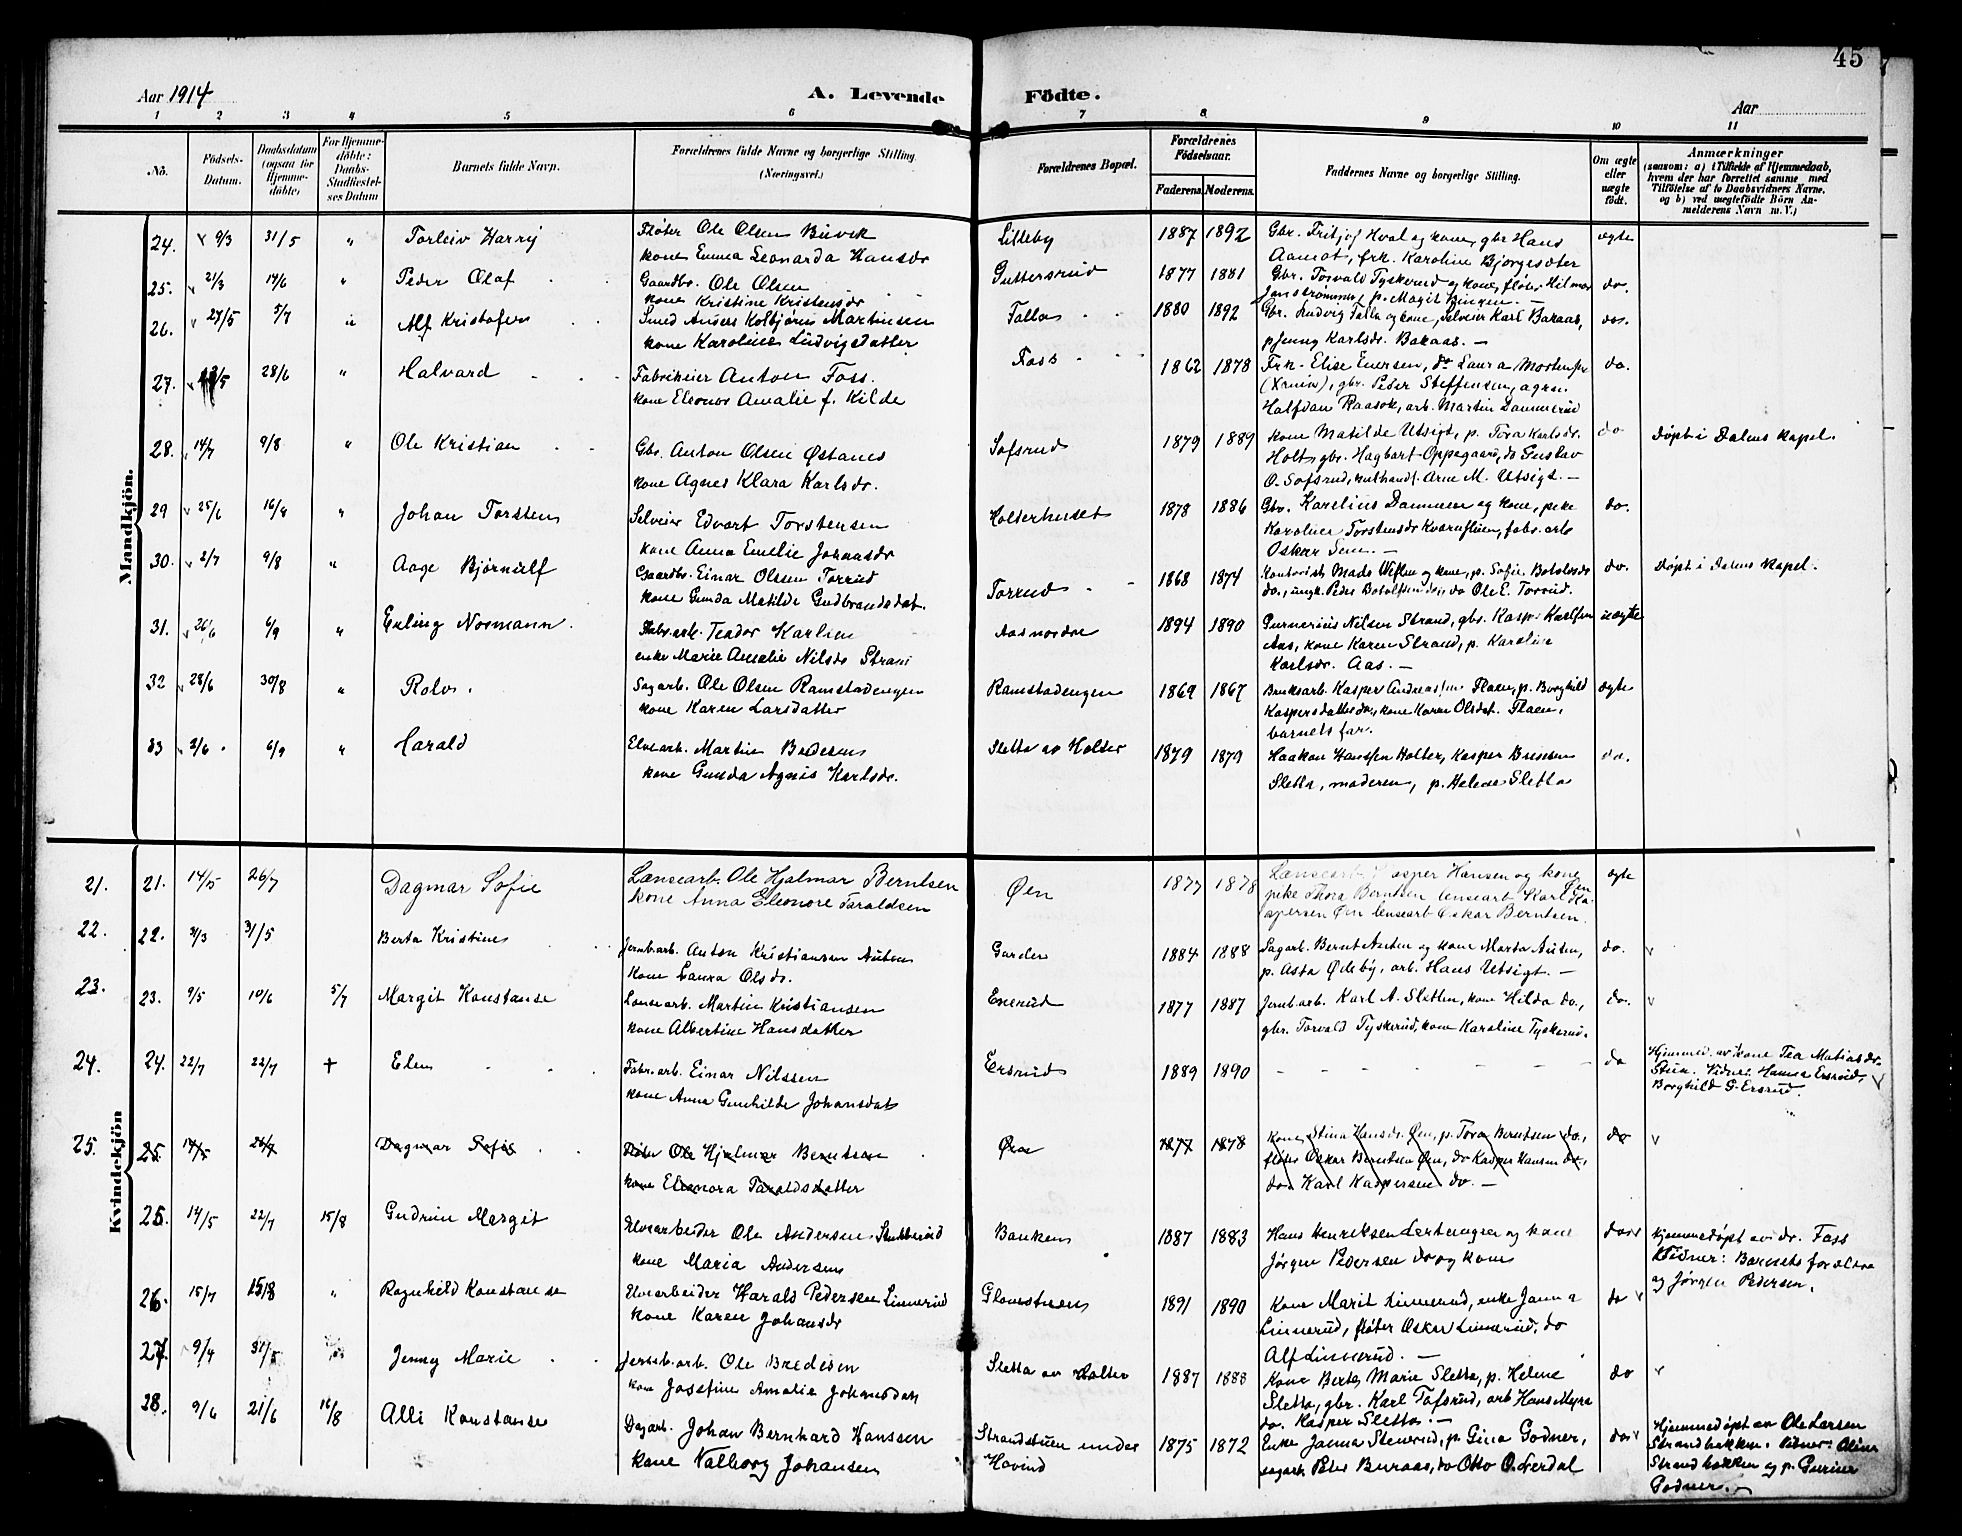 45
Aar 1914
A. Levende Födte.
Aar
1 2 3 4 5 6 7 8 9 10 11
No.
Födsels-Datum.
Daabsdatum (ogsaa for Hjemme-döbte)
For Hjemme-döbte: Daabs-Stadfæstel-ses Datum
Barnets fulde Navn.
Forældrenes fulde Navne og borgerlige Stilling. (Næringsvei.)
Forældrenes Bopæl.
Forældrenes Födselsaar.
Faderens. Moderens.
Faddernes Navne og borgerlige Stilling.
Om ægte eller uægte födt.
Anmærkninger
(saasom: a) i Tilfælde af Hjemmedaab,
hvem der har forrettet samme med
Tilföielse af to Daabsvidners Navne.
og b) ved uægtefödte Börn An-
melderens Navn m. V.)
Mandkjön.
24. 9/3 31/5 " Torleiv Harry Fløter Ole Olsen Buvik Lilleby 1887 1892 Gbr. Fritjof Hval og kone, gbr Hans ægte
kone Emma Leonarda Hansdr Aamot, frk. Karoline Bjørgesæter
25. 21/3 14/6 " Peder Olaf Gaardbr. Ole Olsen Guttersrud 1877 1881 Gbr. Torvald Tyskerud og kone, fløter Hilmar do.
kone Kristine Kristensdr p. Magit Bingen. —
26. 27/5 5/7 " Alf Kristofer Smed Anders Kolbjørn Martinsen Falla 1880 1892 Gbr. Ludvig Falla og kone, selveier Karl Bakaas,
kone Karoline Ludvigsdatter p Jenny Karlsdr. Bakaas. —
27. 28/6 " Halvard Fabrikeier Anton Foss. Foss 1862 1878 Frk. Elise Eversen, do Laura Mortensen do.
kone Eleonor Amalie f. Kilde gbr. Peder Steffensen, agrn.
Halfdan Raasok, arb. Martin Dammerud
28. 14/7 9/8 " Ole Kristian Gbr. Anton Olsen Østanes Sofsrud 1879 1889 Kone Matilde Utsigt, p. Tora Karlsdr. do Døpt i Dalens Kapel.
kone Agnes Klara Karlsdr. Holt, gbr. Hagbart Oppegaard, do Gustav
O. Sofsrud, Arne M. Utsigt. —
29 25/6 " Johan Torsten Selveier Edvart Torstensen Holterhuset 1878 1886 Gbr. Karelius Dammen og kone, pike do.
kone Anna Emelie Johansdr Karoline Torstensdr fabr. arb
Oskar —
30. 2/7 9/8 " Aage Bjørnulf Gaardbr. Einar Olsen Torrud Torrud 1868 1874 Kontorist Mads og kone, p. Sofie do. Døpt i Dalens Kapel.
kone Gunda Matilde Gudbrandsdat. do., ungk. Peder do Ole E. Torrud.
31. 26/6 6/9 " Erling Normann. Fabr.arb. Teodor Karlsen Aas nordre 1894 1890 Gunerius Nilsen Strand, gbr. Kasper Karlsen uægte
enke Marie Amalie Nilsdr Strand Aas, kone Karen Strand, p. Karoline
Karlsdr. Aas. —
32 28/6 30/8 " Rolv. Sagarb. Ole Olsen Ramstadengen Ramstadengen 1869 1867 Bruksarb. Kasper Andreassen Flaen, p. Borghild ægte
kone Karen Larsdatter Kaspersdatter do, kone Karen Olsdat. Flaen,
barnets far.
33 2/6 6/9 " Harald Elvearb. Martin Bredesen Sletta av Holter 1879 1879 Haakon Hanssen Holter, Kasper do.
kone Gunda Agnis Karlsdr. Sletta, moderen, p. Helene Sletta
Kvindekjön
21. 21. 14/5 26/7 Dagmar Sofie Lænsearb. Ole Hjalmar Berntsen Øen 1877 1878 Lænsearb. Kasper Hansen og kone ægte
kone Anna Eleonore Taraldsen pike Thora Berntsen lensearb Karl Ka-
spersen Øen lensearb Oskar Berntsen.
22. 22. 31/5 Berta Kristine Jernb.arb. Anton Kristiansen Auten Garder 1884 1888 Sagarb. Bernt Auten og kone Marta Auten, do. v
kone Laura Olsdr. p. Asta Ødeby, arb. Hans Utsigt. —
23. 23. 9/5 10/6 5/7 Margit Konstanse Lænsearb. Martin Kristiansen Enerud 1877 1887 Jernb arb. Karl A. Sletten, kone Hilda do., do. v
kone Albertine Hansdatter gbr. Torvald Tyskerud, kone Karoline Tyskerud.
24. 24. 22/7 22/7 † Elen Fabr.arb. Einar Nilssen Ersrud 1889 1890 – – – – – do Hjemmed. av kone Tea Matiasdr.
kone Anna Gunhilde Johansdat Vidner: Hanna Ersrud, v
Borghild G. Ersrud.
25. 25. 14/5 26/7 Dagmar Sofie Fløter Ole Hjalmar Berntsen Øen 1877 1878 Kone Stina Hansdr. Øen, p. Tora Berntsen do., do v
kone Eleonora Taraldsdatter fløter Oskar Berntsen Øen, do Kasper Hansen do.,
do Karl Kaspersen do. —
25. 14/5 22/7 15/8 Gudrun Margit Elvearbeider Ole Andersen Stubberud Banken 1887 1883 Hans Henriksen og kone do Hjemmedøpt av dr. Foss
kone Maria Andersen Jørgen Pedersen do og kone Vidner: Barnets forældre
og Jørgen Pedersen.
26. 15/7 15/8 " Ragnhild Konstanse Elvearbeider Harald Pedersen Linnerud 1891 1890 Kone Marit Linnerud, enke Janna do v
kone Karen Johansdr Linnerud, fløter Oskar Linnerud, do
Alf Linnerud. —
27. 9/4 31/5 Jenny Marie Jernb.arb. Ole Bredesen Sletta av Holter 1887 1888 Kone Berte Marie Sletta, p. Helene do v
kone Josefine Amalie Johansdat Sletta, gbr. Karl Tofsrud, arb Hans Myra
do. Kasper Sletta. —
28. 9/6 21/6 16/8 Alli Konstanse Dagarb. Johan Bernhard Hanssen Strandstuen under Hovind 1875 1872 Enke Janna Stenerud, p. Gina Godner, do v Hjemmedøpt av Ole Larsen
kone Valborg Johansen sagarb Peter Buraas, do Otto Strandbakken. Vidner: Oline
Strandbakken og p.
Godner. —